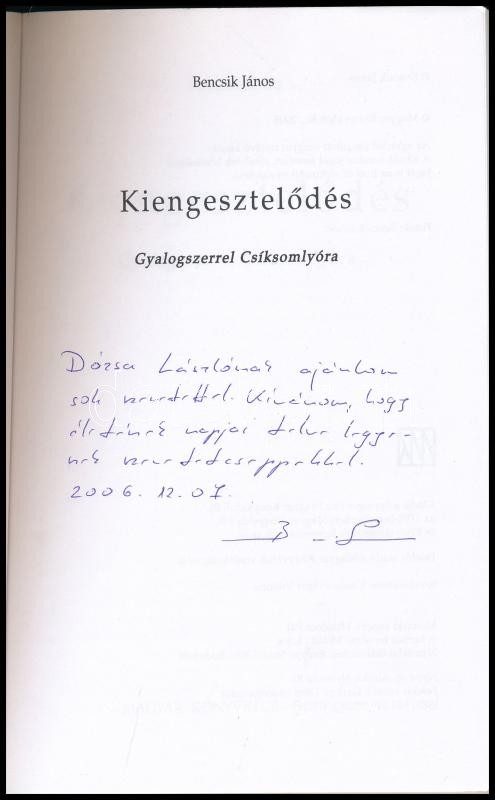 Bencsik János
Kiengesztelődés
Gyalogszerrel Csíksomlyóra
Dózsa Lászlónak ajánlom
sok szeretettel. Kívánom, hogy
életének napjai telve legye-
nek szeretetcseppekkel.
2006. 12. 07.